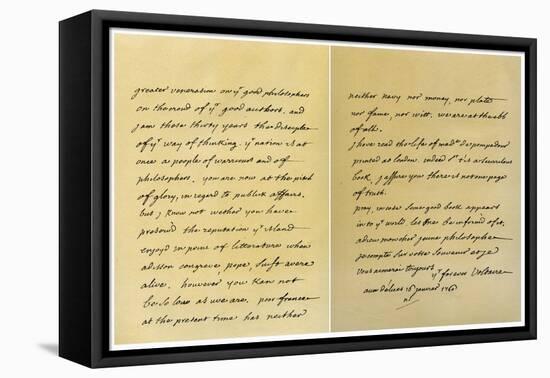 greater veneration on yr good philosophers
on the croud of yr good authors. and
j am these thirty years the disciple
of yr way of thinking. yr nation is at
once a people of warriours and of
philosophers. you are now at the pitch
of glory, in regard to publick affairs.
but j know not wether you have
preserv'd the reputation yr island
enjoy'd in point of litterature when
adisson congreve, pope, suift were
alive. however you kan not
be so low as we are. poor france
at the present time has neither
neither navy nor money, nor plate
nor fame, nor witt. we are at the ebb
of all.
j have read the life of made de pompadour
printed at london. indeed sr it is a scurulous
book, j assure you there is not one page
of truth.
pray, in case some good book appears
in to yr world let me be inform'd of it.
adieu mon cher jeune philosophe
je compte sur votre souvenir et je
vous aimerai toujours
yr forever Voltaire
aux delices 16 janvier 1760